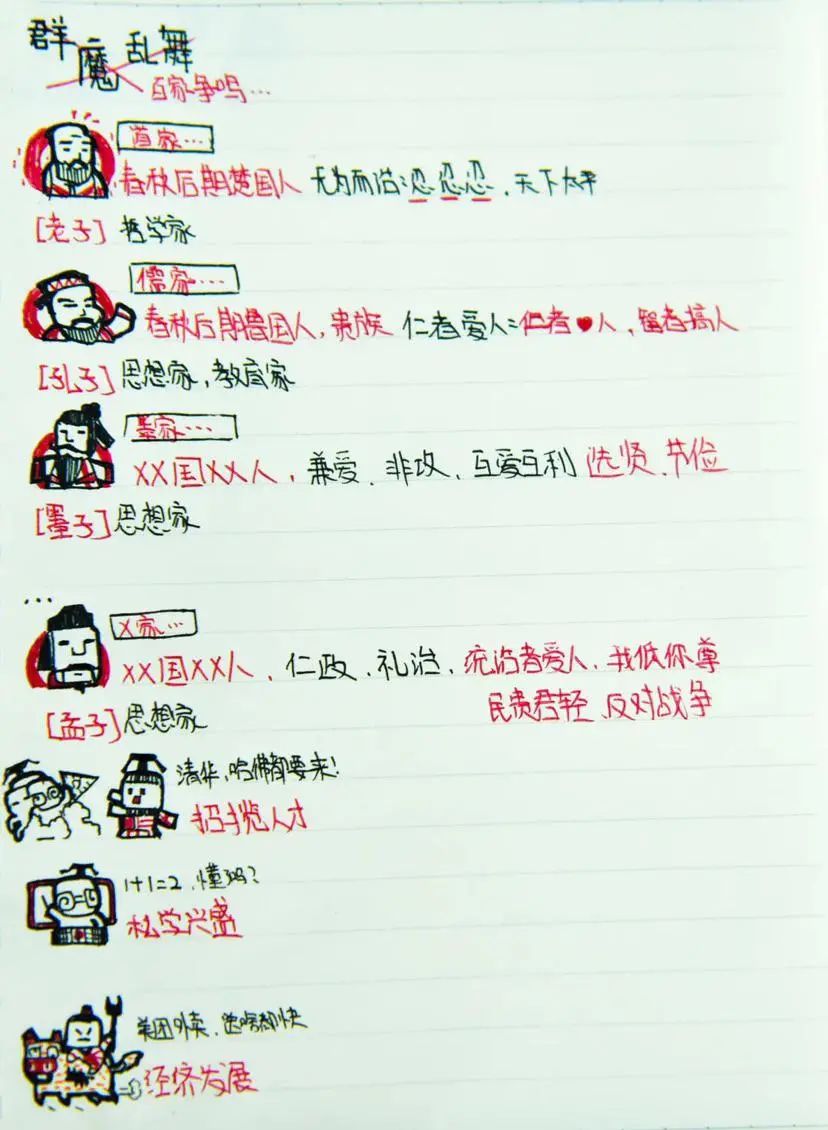 群魔乱舞
百家争鸣…
道家…
春秋后期楚国人 无为而治:忍忍忍,天下太平
[老子]哲学家
儒家…
春秋后期鲁国人,贵族 仁者爱人:仁者♥人,智者搞人
[孔子]思想家,教育家
墨家…
XX国XX人,兼爱、非攻,互爱互利 选贤、节俭
[墨子]思想家
...
X家…
XX国XX人、仁政、礼治,统治者爱人,我低你尊
民贵君轻、反对战争
[孟子]思想家
清华,哈佛都要来!
招揽人才
1+1=2,懂吗?
私学兴盛
美团外卖,送啥都快
经济发展